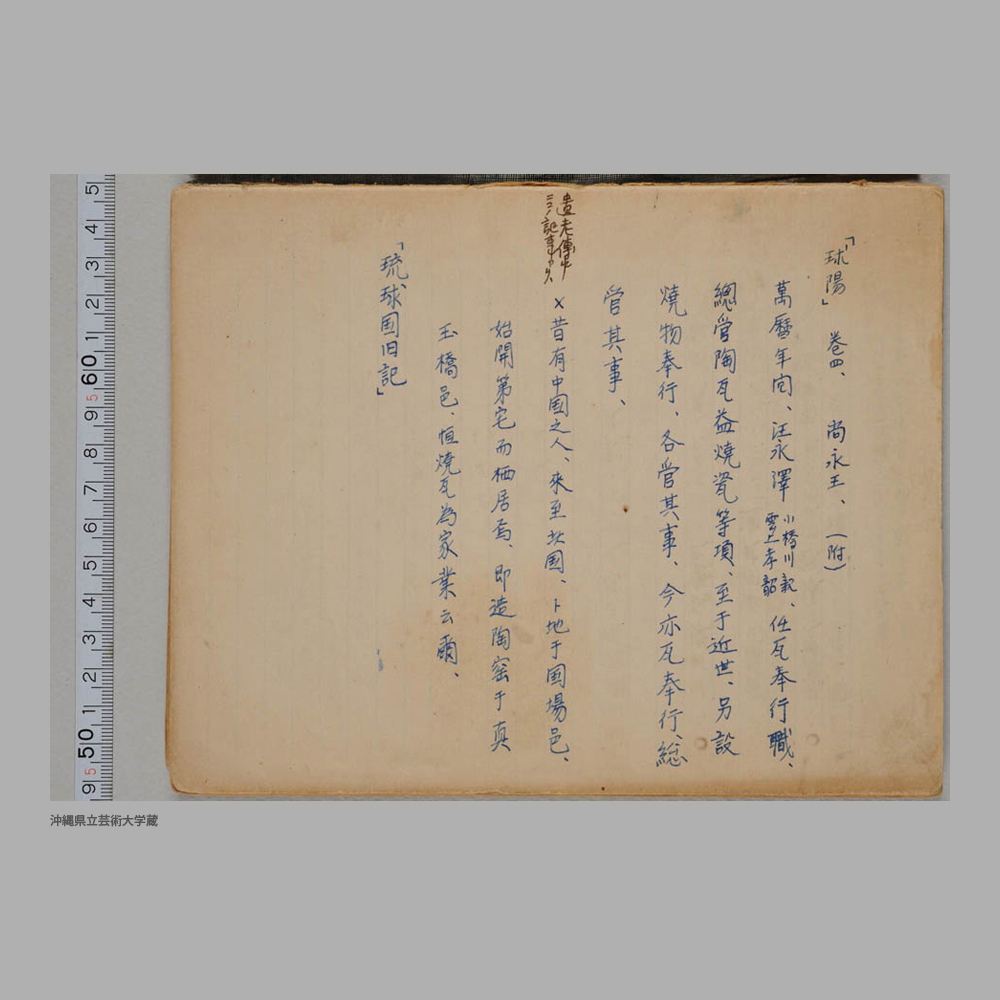 「球陽」 巻四、 尚永王、(附)
萬曆年间、汪永澤 小橋川親雲上孝韶、任瓦奉行職、
總管陶瓦並燒瓷等項、至于近世、另設
燒物奉行、各管其事、今亦瓦奉行、総
管其事、
遺老傳中
ニコノ記事アリ
×昔有中国之人、來至此國、卜地于国場邑、
始開第宅而栖居焉、即造陶窑于真
玉橋邑、恒燒瓦為家業云爾、
「琉球国旧記」
5 4 3 2 1 60 9 8 7 6 5 4 3 2 1 50 9
5 5
沖縄県立芸術大学蔵